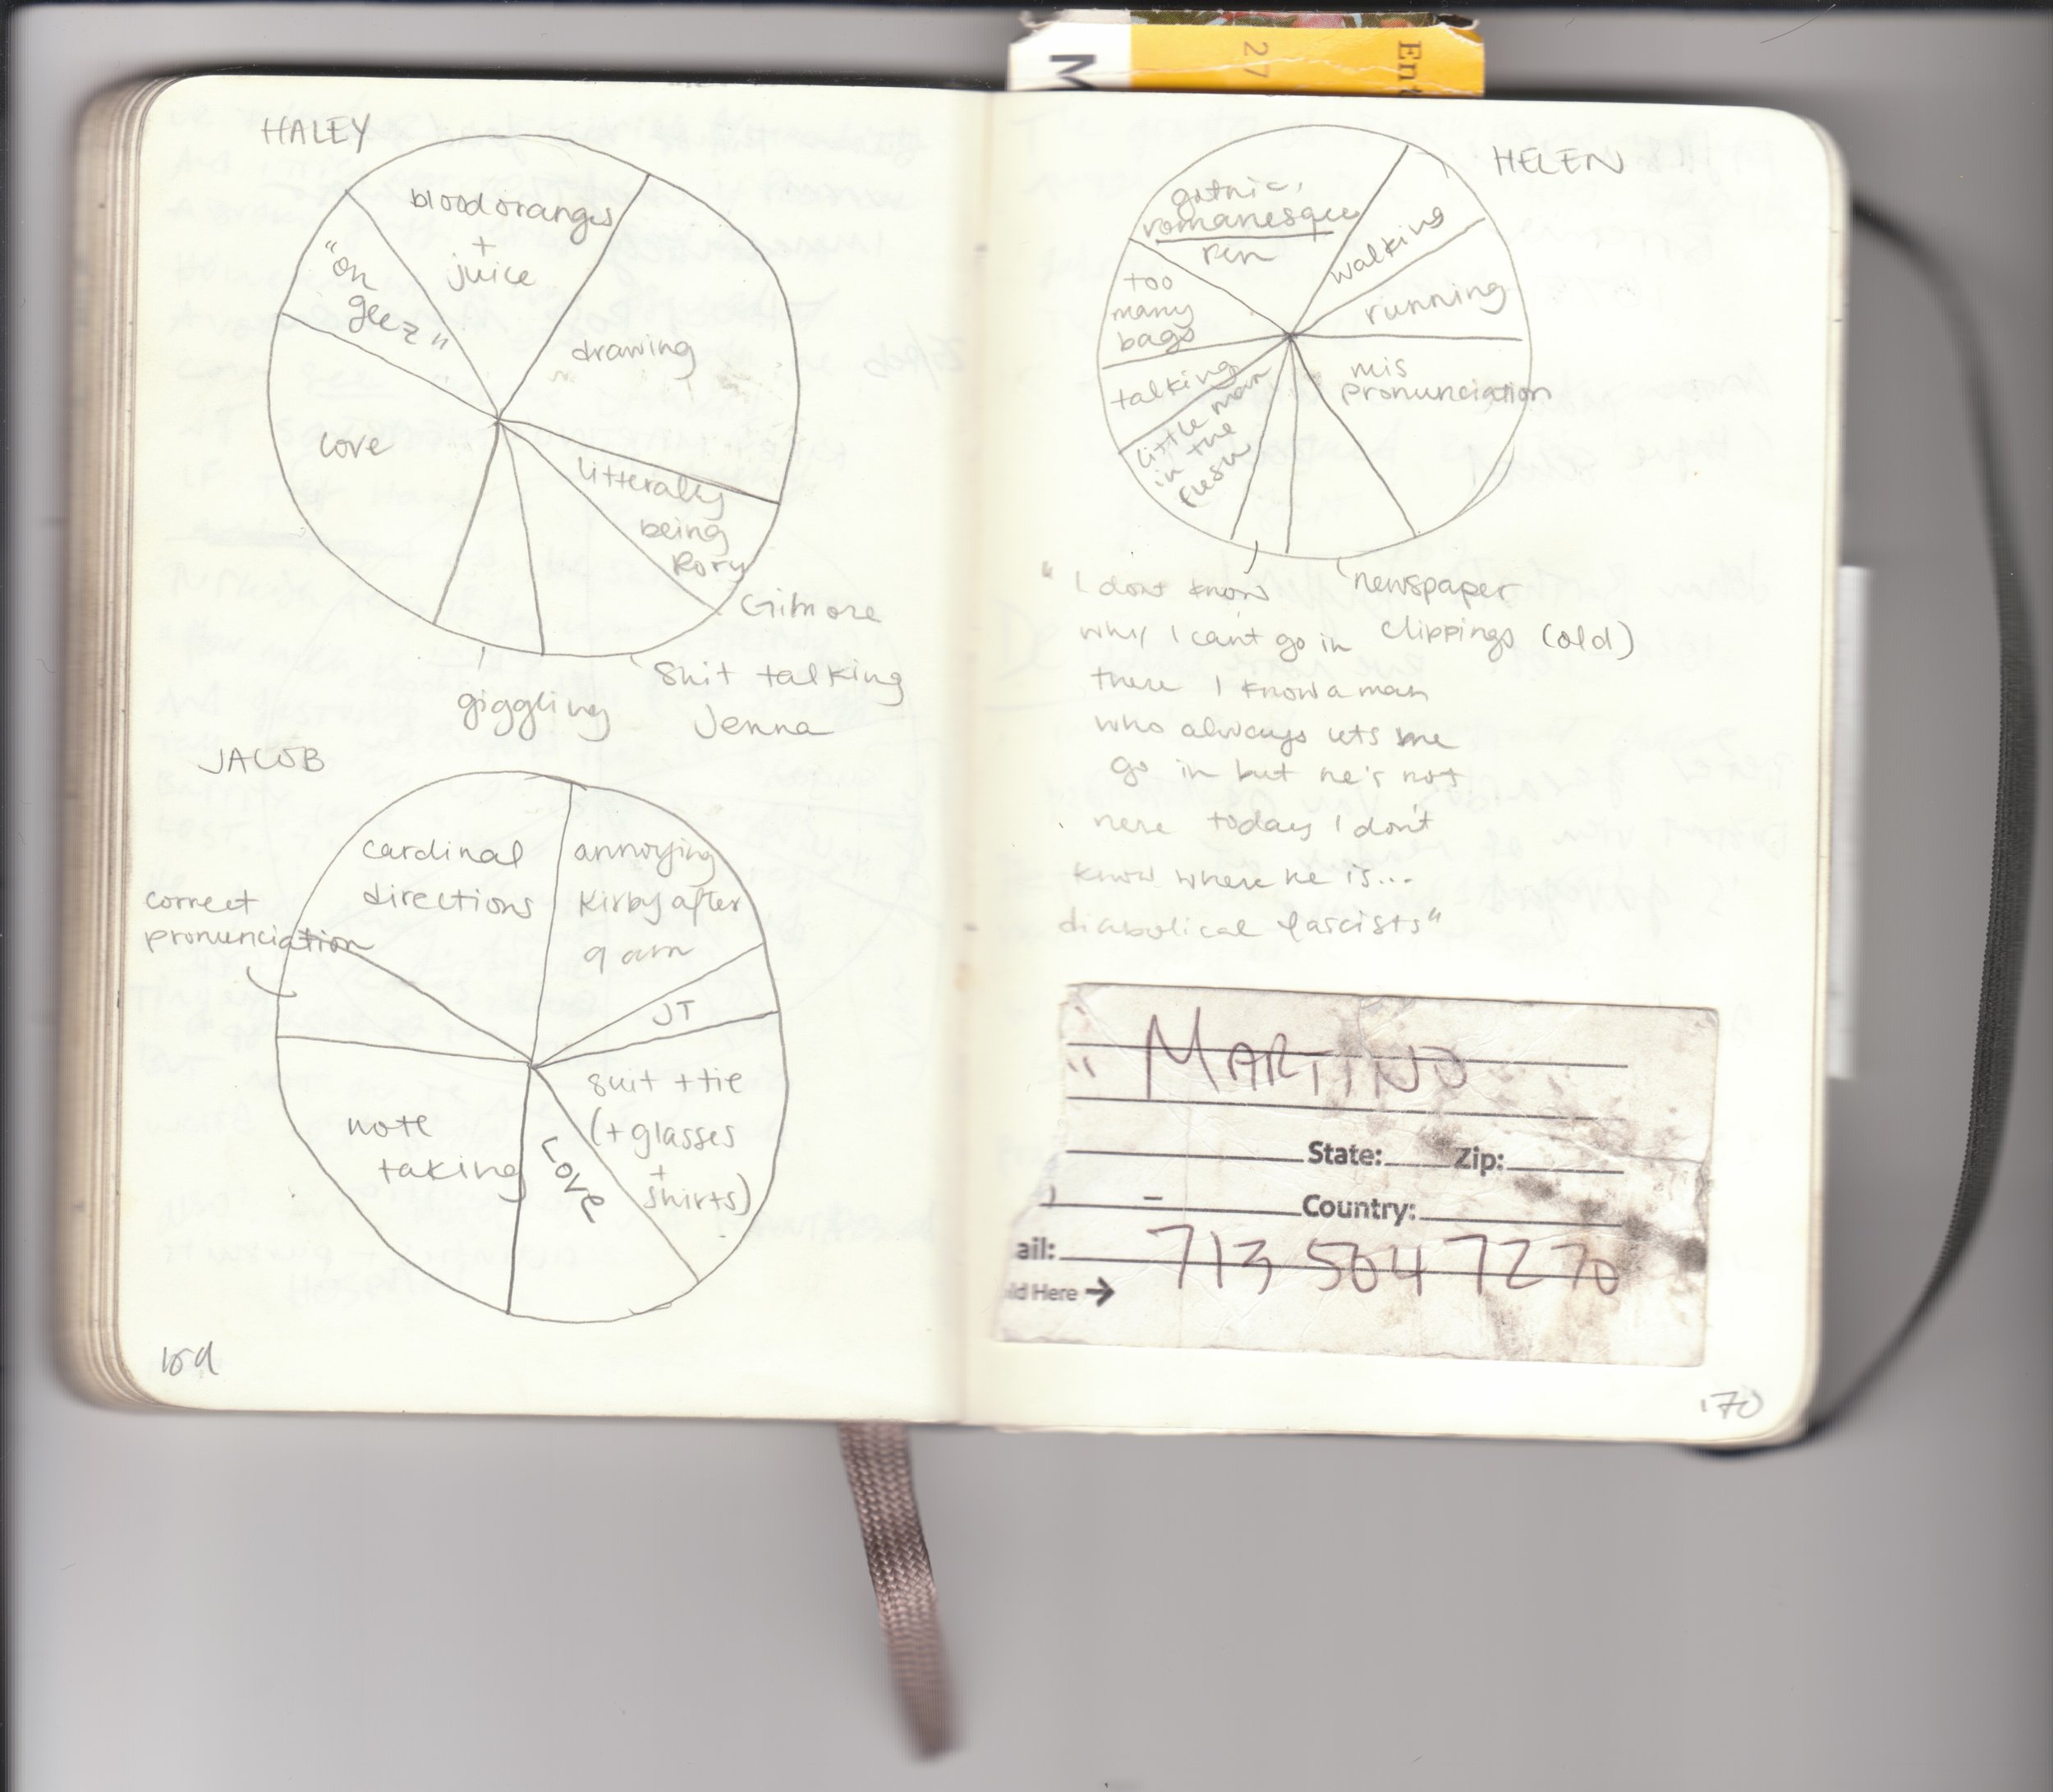 M
27
Ent
HALEY
blood oranges
+
juice
"oh
geez"
drawing
love
litterally
being
Rory
Gilmore
Shit talking
Jenna
giggling
JACOB
cardinal
directions
annoying
Kirby after
9 am
correct
pronunciation
JT
suit + tie
(+ glasses
+
shirts)
Love
note
taking
169
HELEN
gothic,
romanesque
ren
walking
running
too
many
bags
mis
pronunciation
talking
little man
in the
flesh
newspaper
clippings (old)
"I dont know
why I can't go in
there I know a man
who always lets me
go in but he's not
here today I don't
know where he is...
diabolical fascists"
MARTINO
State: Zip:
Country:
ail:
713 504 7270
ld Here →
170